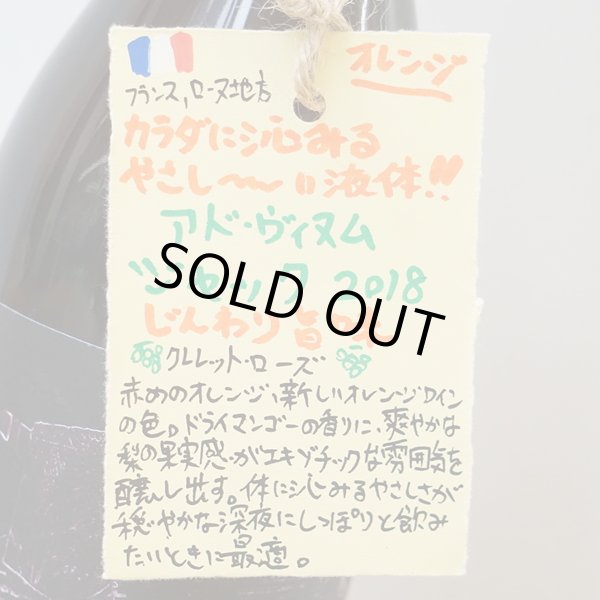 オレンジ
フランス,ローヌ地方
カラダに沁みる
やさし〜〜い液体!!
アド・ヴィヌム
2018
SOLD OUT
じんわり旨味
クレレット・ローズ
赤めのオレンジ、新しいオレンジワイン
の色。ドライマンゴーの香りに、爽やかな
梨の果実感がエキゾチックな雰囲気を
醸し出す。体に沁みるやさしさが
穏やかな深夜にしっぽりと飲み
たいときに最適。